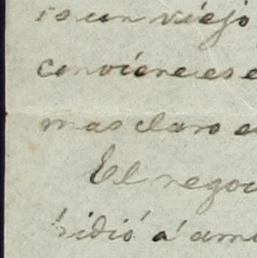 es un viejo
conviene es e
mas claro e
El negoc
pidió á am